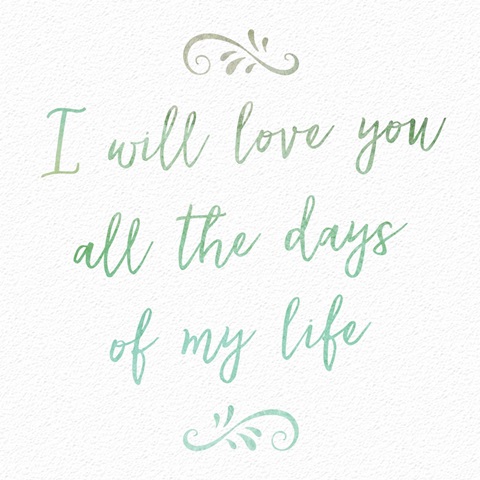 I will love you
all the days
of my life